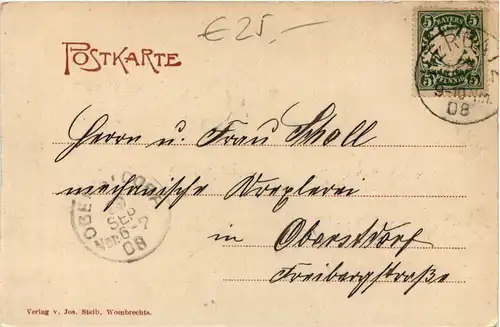 € 25,-
POSTKARTE
5 BAYERN 5
5 PFENNIG 5
9-10 Vm.
08
Herrn u. Frau Scholl
mechanische Drexlerei
in Oberstdorf
Freibergstraße
OBERSTDORF
SEP
Vor. 6-7
08
Verlag v. Jos. Steib, Wombrechts.